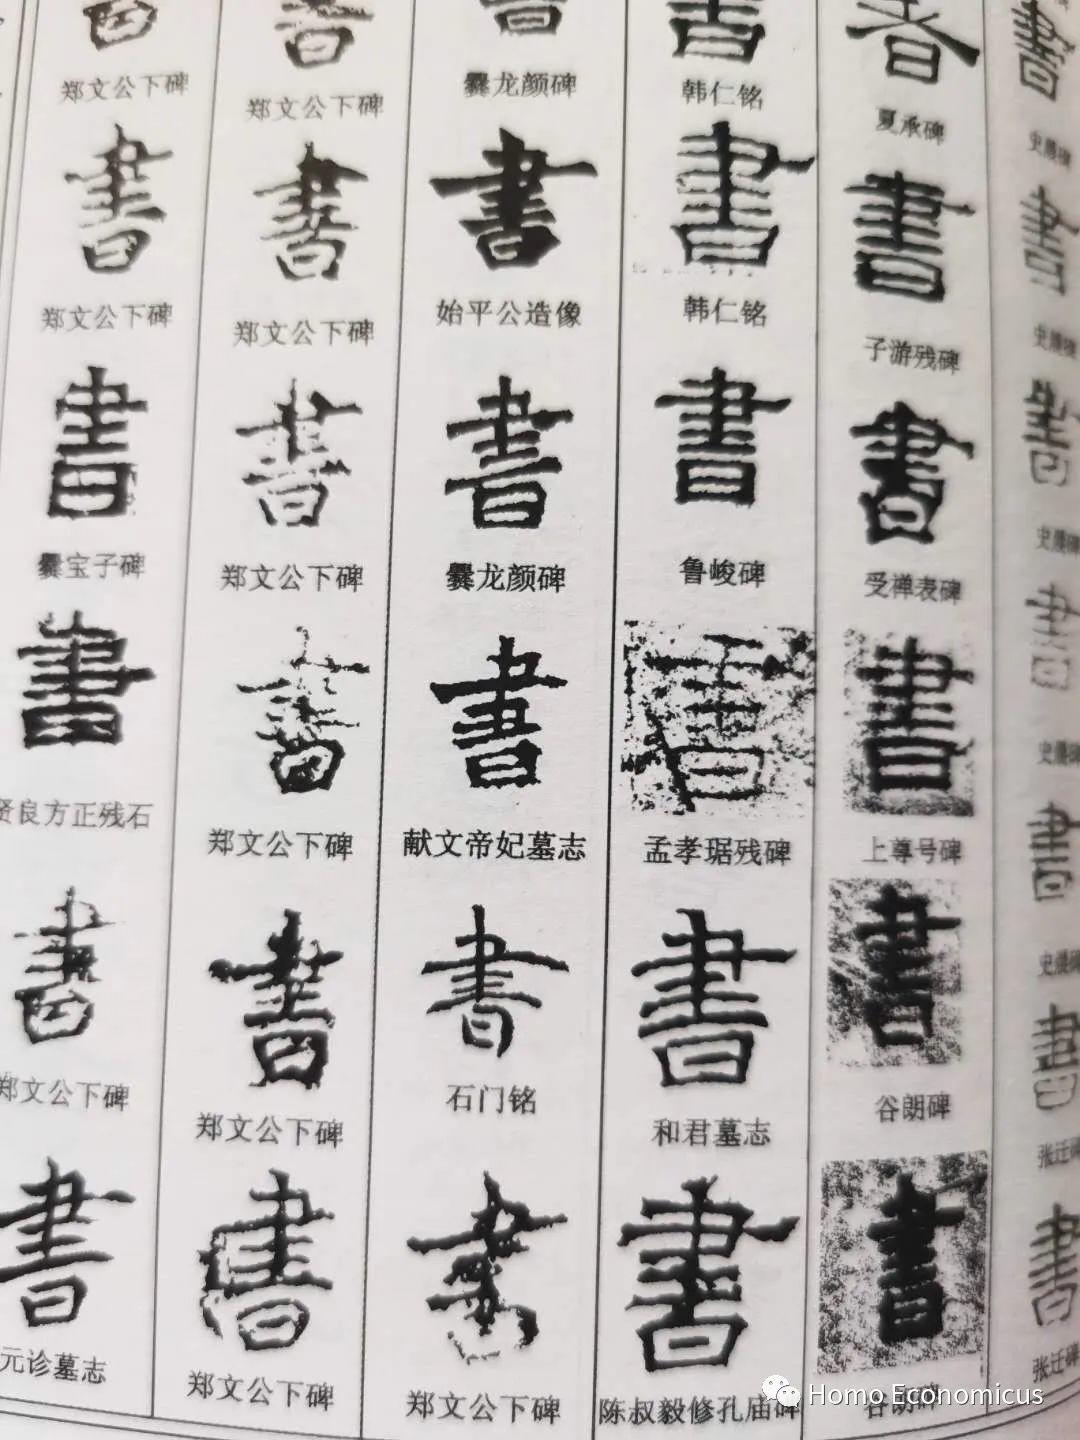 書
書
書
書
書
書
张迁碑
書
张迁碑
書
夏承碑
書
子游残碑
書
受禅表碑
書
上尊号碑
書
谷朗碑
書
谷朗碑
書
韩仁铭
書
韩仁铭
書
鲁峻碑
書
孟孝琚残碑
書
和君墓志
書
陈叔毅修孔庙碑
書
爨龙颜碑
書
始平公造像
書
爨龙颜碑
書
献文帝妃墓志
書
石门铭
書
郑文公下碑
書
郑文公下碑
書
郑文公下碑
書
郑文公下碑
書
郑文公下碑
書
郑文公下碑
書
郑文公下碑
書
郑文公下碑
書
郑文公下碑
書
爨宝子碑
書
贤良方正残石
書
郑文公下碑
書
元诊墓志
Homo Economicus